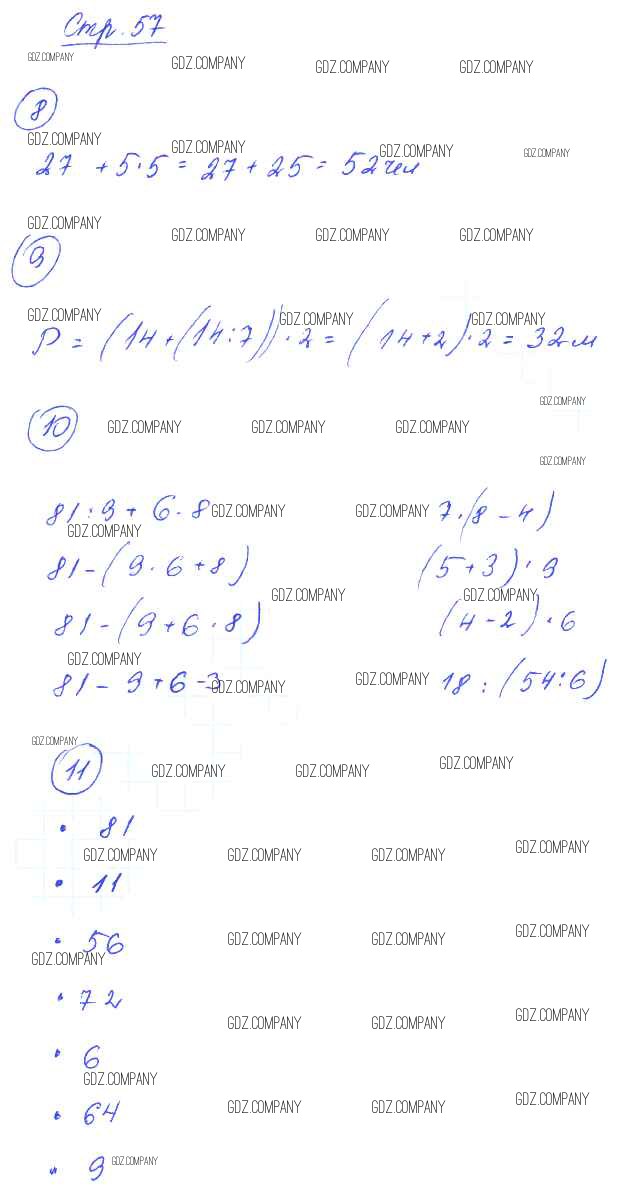 Стр. 57
GDZ.COMPANY GDZ.COMPANY GDZ.COMPANY GDZ.COMPANY
8
GDZ.COMPANY GDZ.COMPANY GDZ.COMPANY GDZ.COMPANY
27 + 5·5 = 27 + 25 = 52 чел
GDZ.COMPANY GDZ.COMPANY GDZ.COMPANY GDZ.COMPANY
9
GDZ.COMPANY GDZ.COMPANY GDZ.COMPANY
P = (14 + (14:7))·2 = (14+2)·2 = 32 м
GDZ.COMPANY
10 GDZ.COMPANY GDZ.COMPANY GDZ.COMPANY
GDZ.COMPANY
81:9 + 6·8 GDZ.COMPANY GDZ.COMPANY 7·(8-4)
GDZ.COMPANY
81-(9·6+8) (5+3)·9
GDZ.COMPANY GDZ.COMPANY
81-(9+6·8) (4-2)·6
GDZ.COMPANY
81-9+6-3 GDZ.COMPANY GDZ.COMPANY 18:(54:6)
GDZ.COMPANY
11 GDZ.COMPANY GDZ.COMPANY GDZ.COMPANY
· 81
GDZ.COMPANY GDZ.COMPANY GDZ.COMPANY GDZ.COMPANY
· 11
· 56 GDZ.COMPANY GDZ.COMPANY GDZ.COMPANY
GDZ.COMPANY
· 72
GDZ.COMPANY GDZ.COMPANY GDZ.COMPANY
· 6
GDZ.COMPANY
· 64 GDZ.COMPANY GDZ.COMPANY GDZ.COMPANY
· 9 GDZ.COMPANY